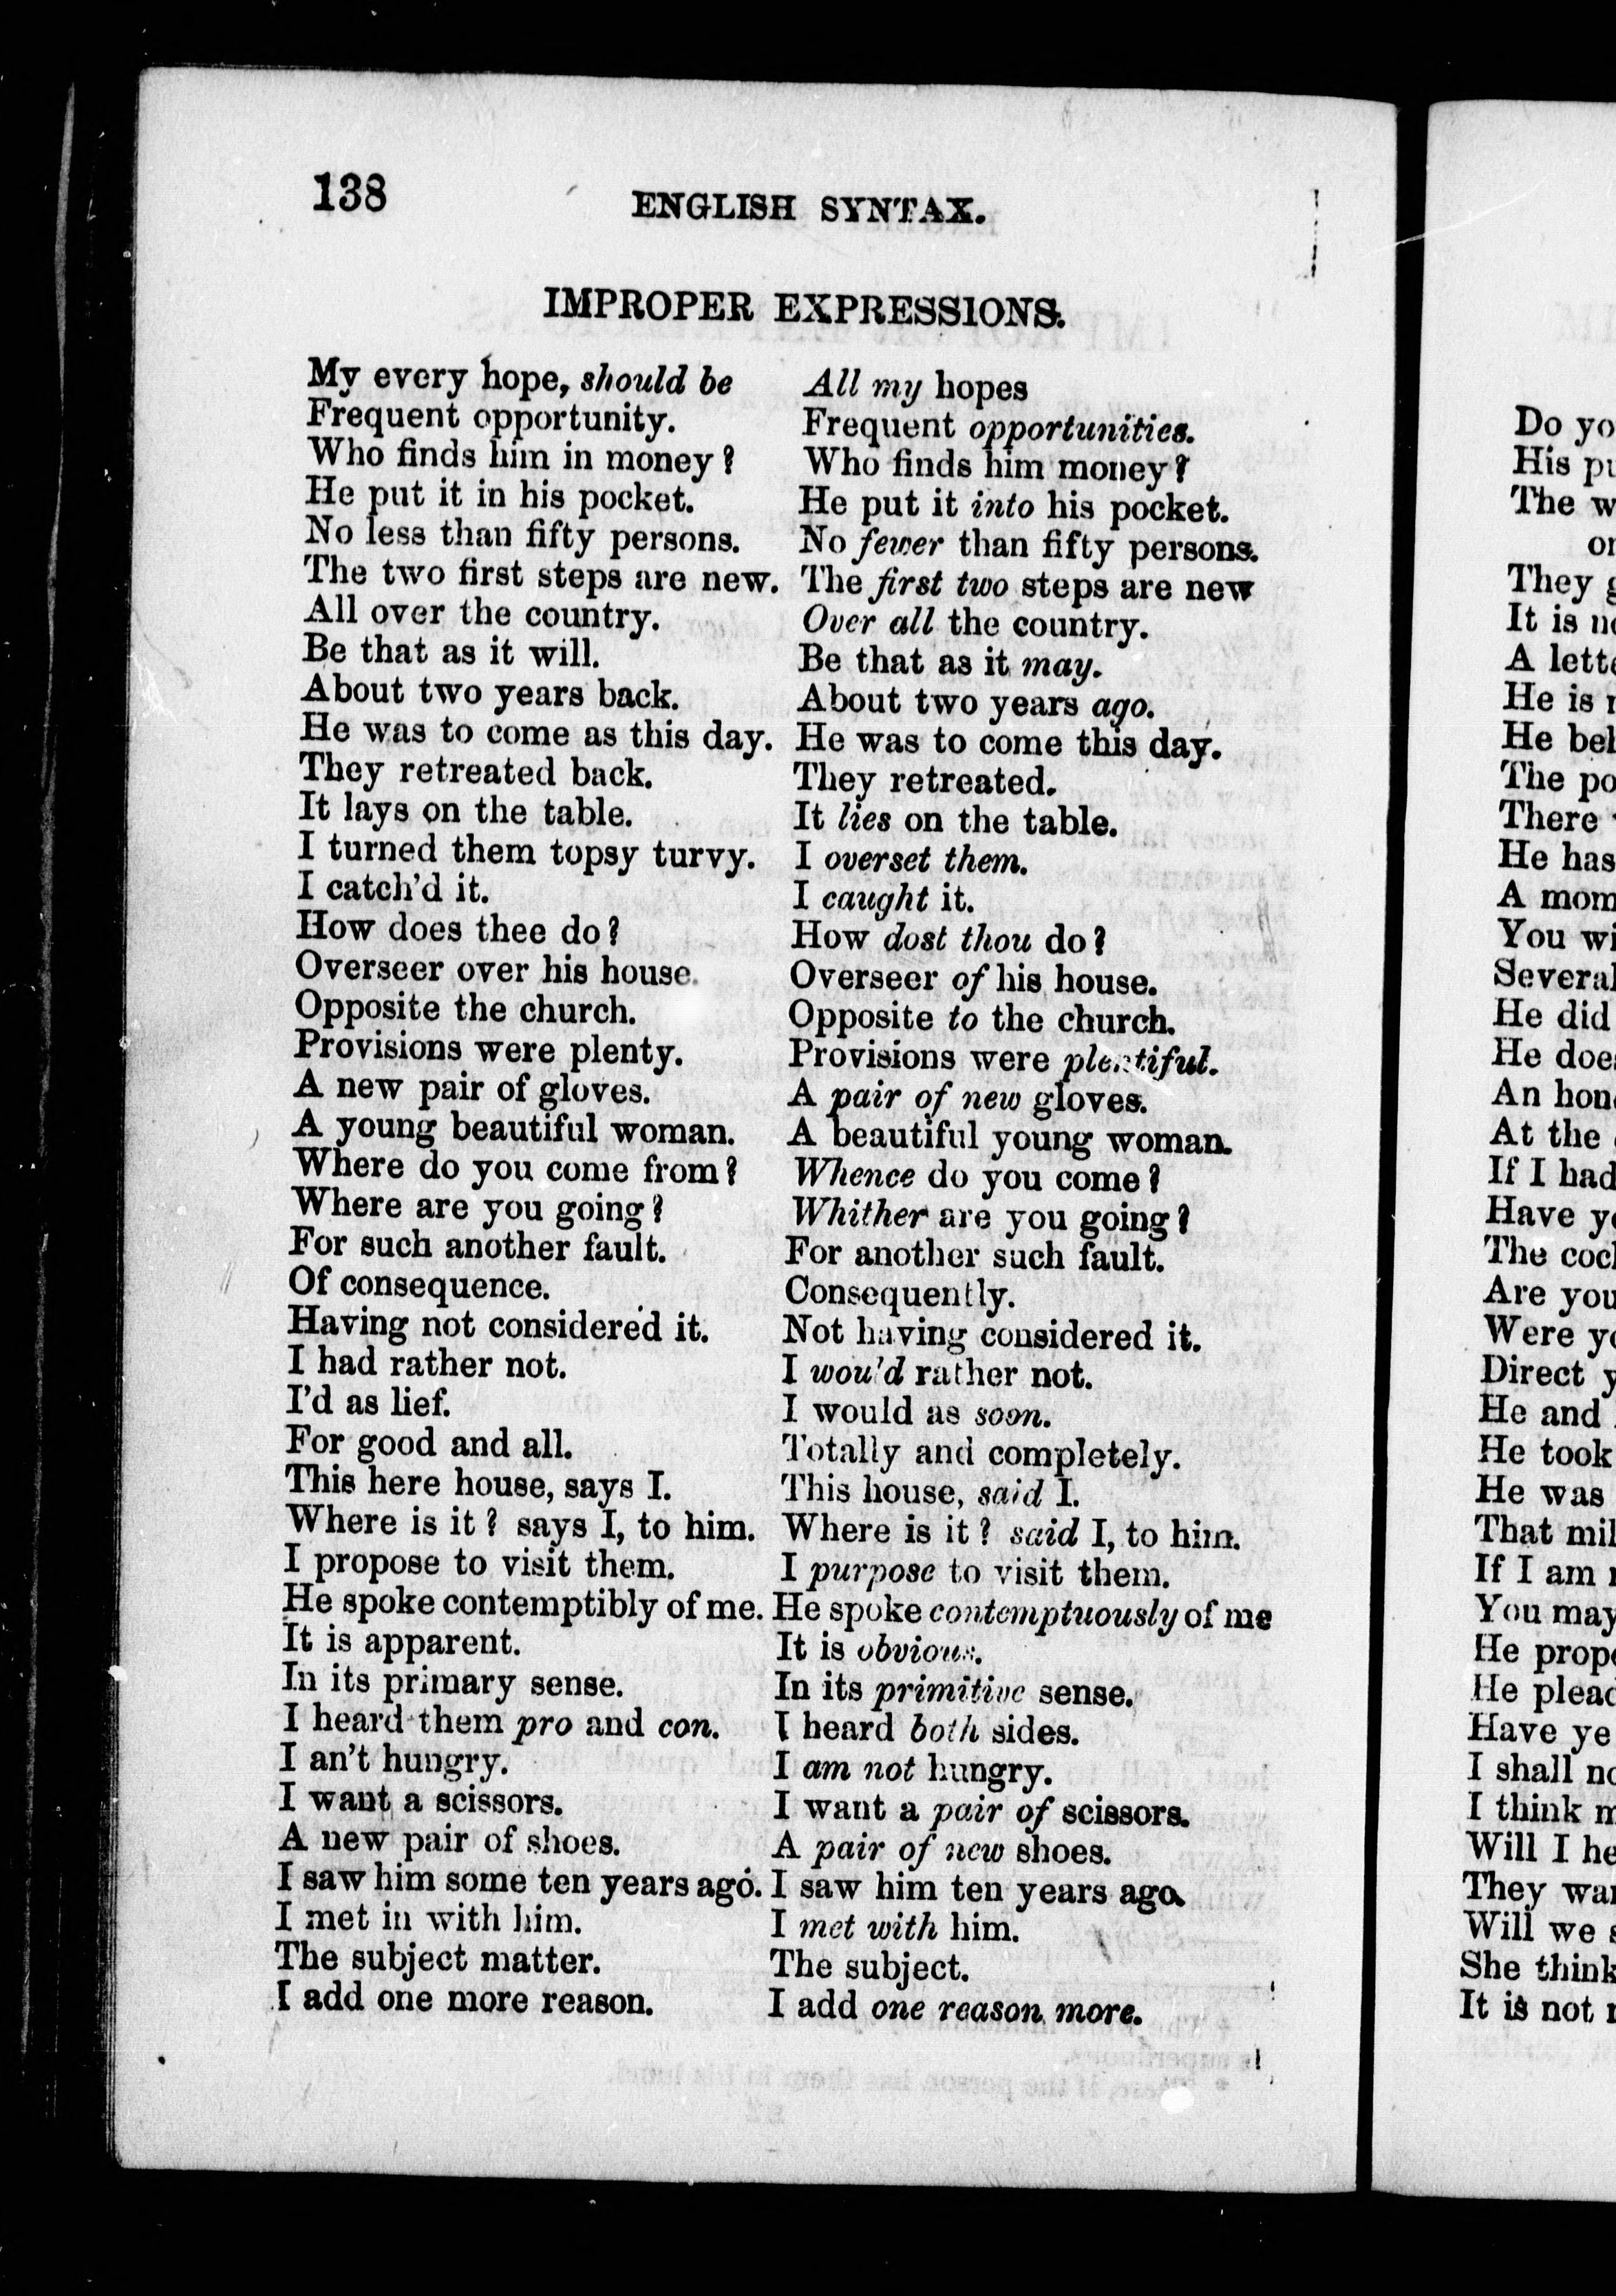 138
ENGLISH SYNTAX.
IMPROPER EXPRESSIONS.
My every hope, should be All my hopes
Frequent opportunity. Frequent opportunities.
Who finds him in money? Who finds him money?
He put it in his pocket. He put it into his pocket.
No less than fifty persons. No fewer than fifty persons.
The two first steps are new. The first two steps are new
All over the country. Over all the country.
Be that as it will. Be that as it may.
About two years back. About two years ago.
He was to come as this day. He was to come this day.
They retreated back. They retreated.
It lays on the table. It lies on the table.
I turned them topsy turvy. I overset them.
I catch'd it. I caught it.
How does thee do? How dost thou do?
Overseer over his house. Overseer of his house.
Opposite the church. Opposite to the church.
Provisions were plenty. Provisions were plentiful.
A new pair of gloves. A pair of new gloves.
A young beautiful woman. A beautiful young woman.
Where do you come from? Whence do you come?
Where are you going? Whither are you going?
For such another fault. For another such fault.
Of consequence. Consequently.
Having not considered it. Not having considered it.
I had rather not. I wou'd rather not.
I'd as lief. I would as soon.
For good and all. Totally and completely.
This here house, says I. This house, said I.
Where is it? says I, to him. Where is it? said I, to him.
I propose to visit them. I purpose to visit them.
He spoke contemptibly of me. He spoke contemptuously of me
It is apparent. It is obvious.
In its primary sense. In its primitive sense.
I heard them pro and con. I heard both sides.
I an't hungry. I am not hungry.
I want a scissors. I want a pair of scissors.
A new pair of shoes. A pair of new shoes.
I saw him some ten years ago. I saw him ten years ago.
I met in with him. I met with him.
The subject matter. The subject.
I add one more reason. I add one reason more.
Do yo
His pu
The w
or
They g
It is no
A lette
He is
He bel
The po
There
He has
A mom
You wi
Several
He did
He does
An hon
At the
If I had
Have yo
The cocl
Are you
Were yo
Direct y
He and
He took
He was
That mil
If I am
You may
He prop
He plead
Have ye
I shall no
I think m
Will I he
They wan
Will we s
She think
It is not